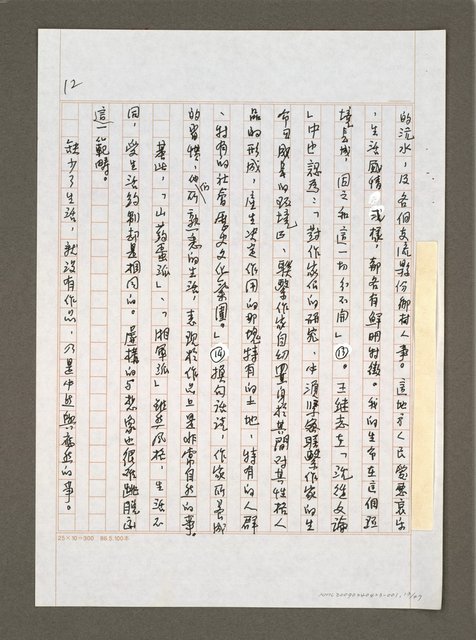 12
的流水，及各個支流縣份鄉村人事。這地方人民愛惡哀樂
，生活感情的式樣，都各有鮮明特徵。我的生命在這個環
境長成，因之和這一切分不開」⑬。王繼志在「沈從文論
」中也認為：「對作家個的研究，必須緊密聯繫作家的生
命由成長的環境，聯繫作家自幼置身於其間對其性格人
品的形成，產生決定作用的那塊特有的土地，特有的人群
、特有的社會歷史文化氛圍。」⑭換句話說，作家所養成
的習慣，他們所熟悉的生活，表現於作品上是非常自然的事。
基此，「山藥蛋派」、「湘軍派」雖然風格，生活不
同，受生活約制卻是相同的。虛構的與想象也很難跳脫
這一範疇。
缺少了生活，就沒有作品，乃是中外與古今的事。
25×10＝300 86.5.100本